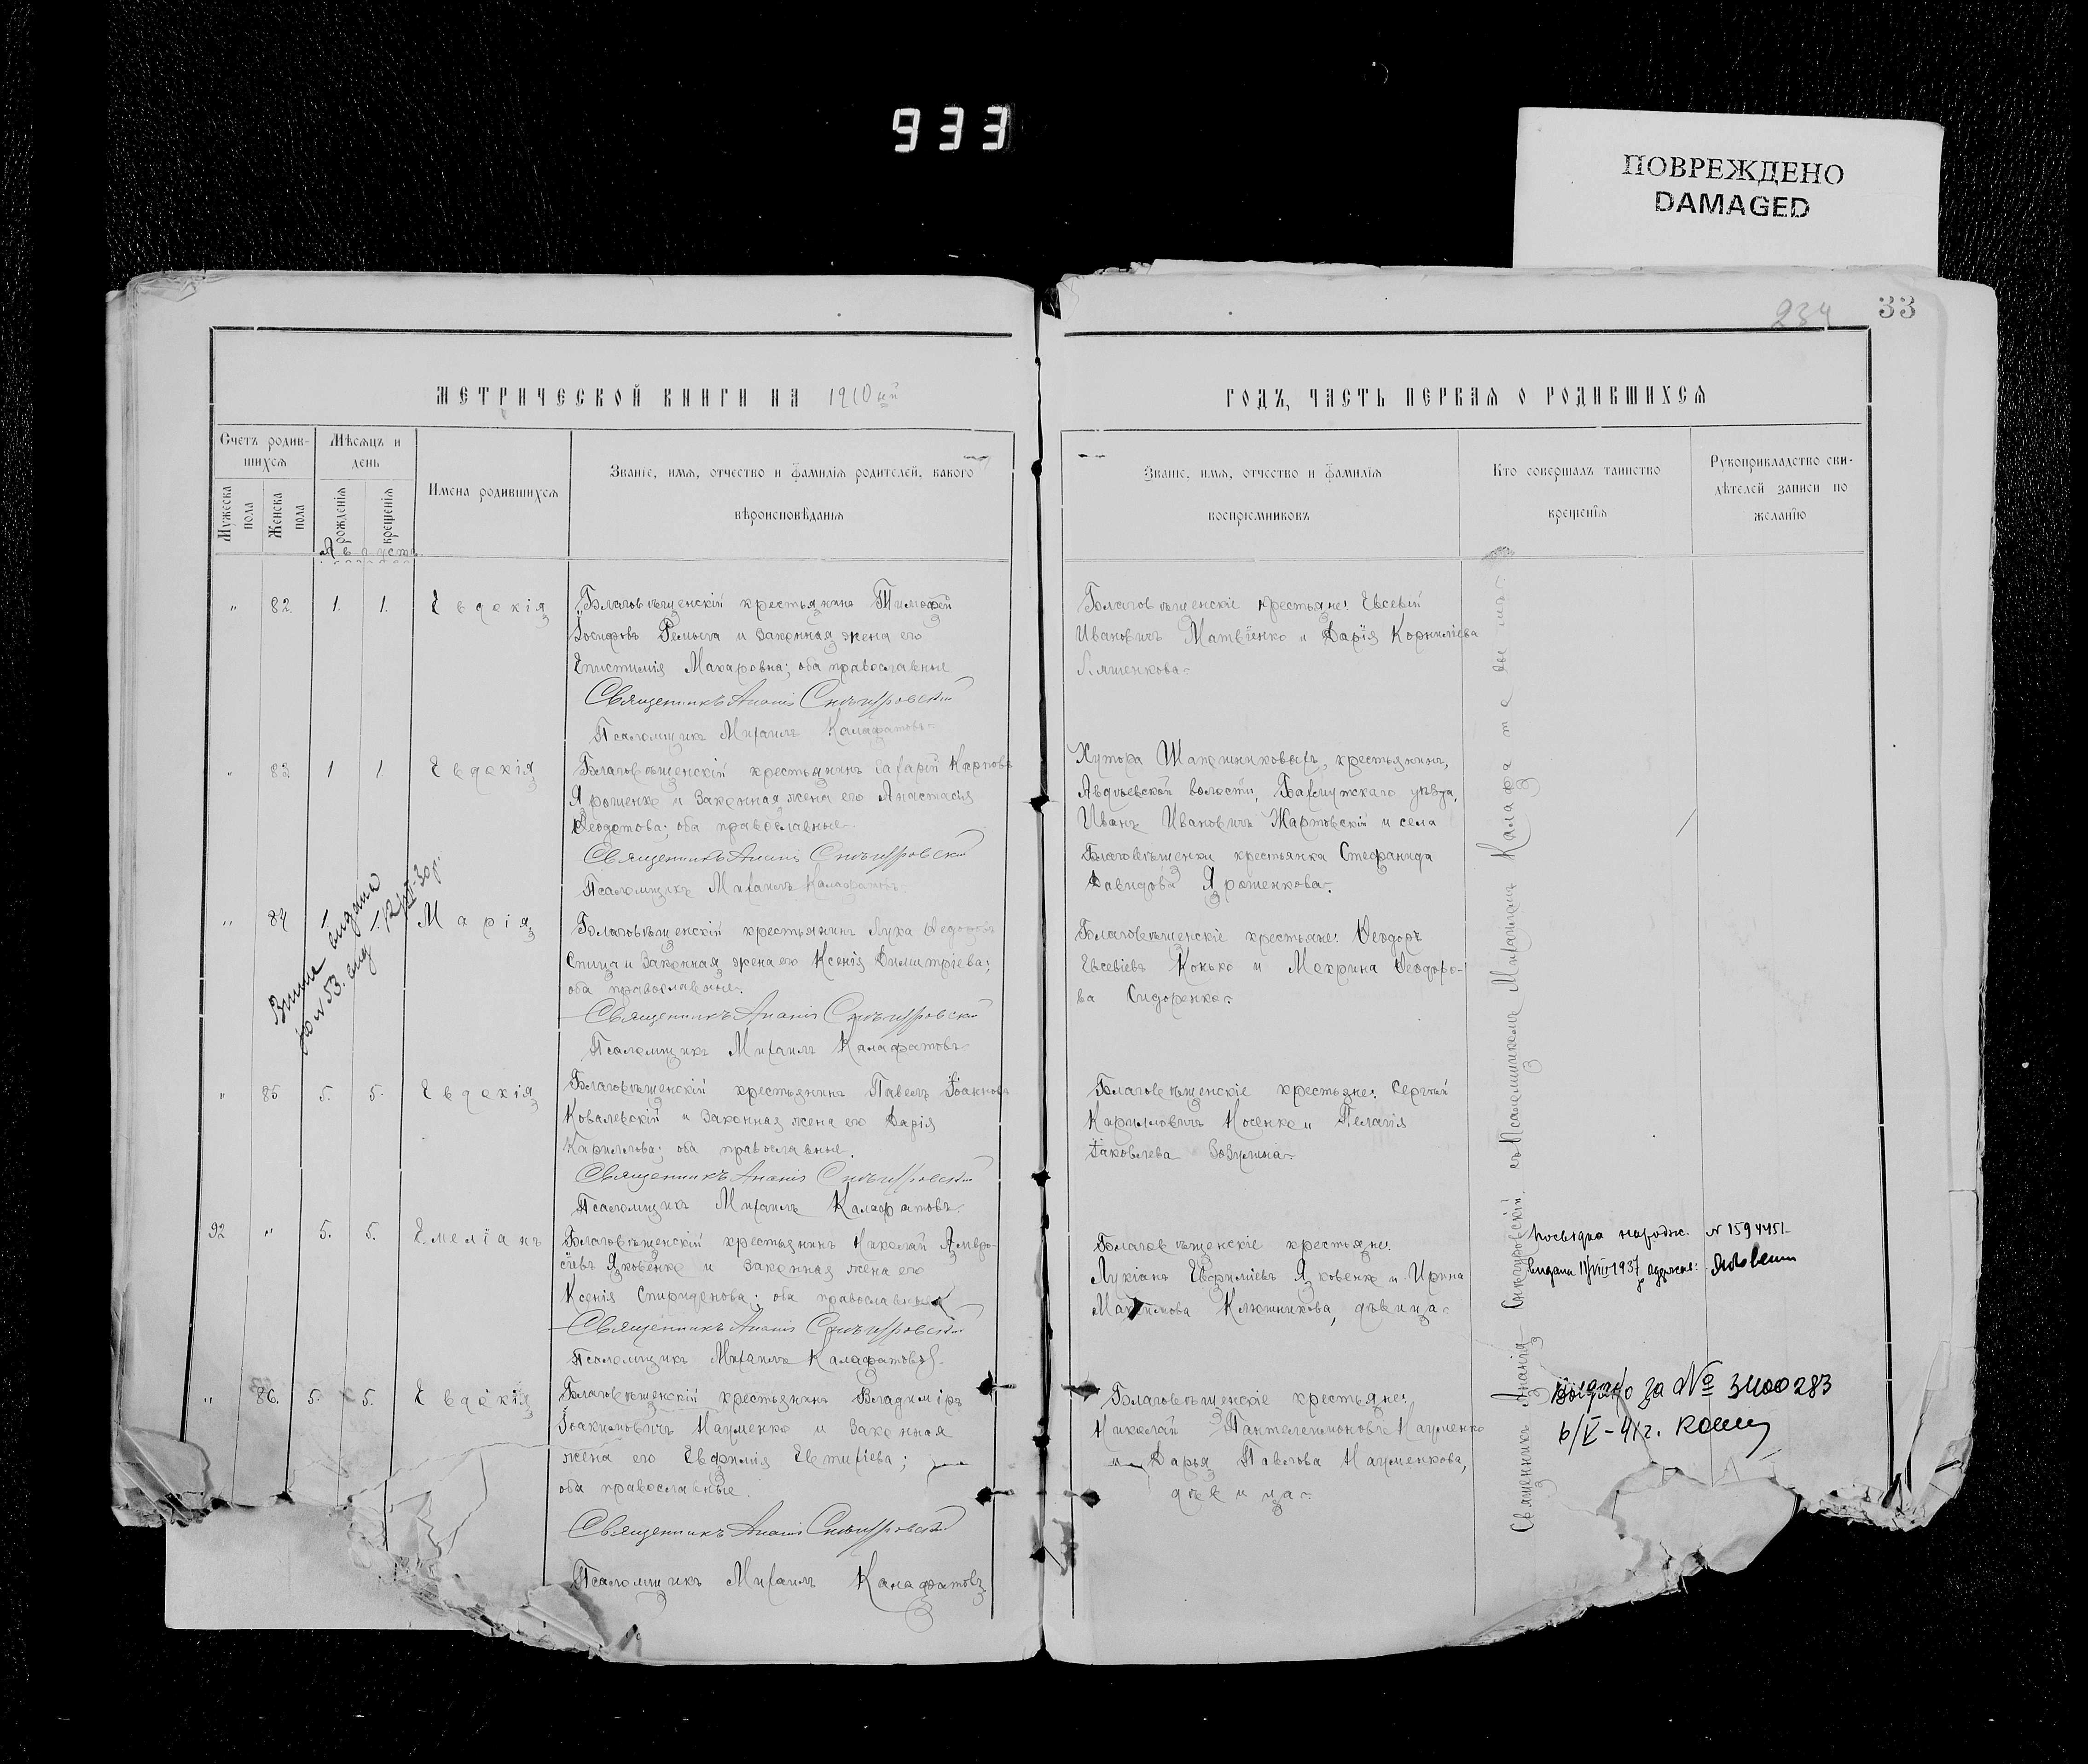 933
ПОВРЕЖДЕНО
DAMAGED
234
33
МЕТРИЧЕСКОЙ КНИГИ НА 1910ый
ГОДЪ, ЧАСТЬ ПЕРВАЯ О РОДИВШИХСЯ
Счетъ родив-
шихся
Мужеска пола
Женска пола
Мѣсяцъ и
день
рожденія
крещенія
Имена родившихся
Званіе, имя, отчество и фамилія родителей, какого
вѣроисповѣданія
Званіе, имя, отчество и фамилія
воспріемниковъ
Кто совершалъ таинство
крещенія
Рукоприкладство сви-
дѣтелей записи по
желанію
Августъ
„ 82. 1. 1. Евдокія
Благовѣщенскій крестьянинъ Тимофей
Іосифовъ Ремыга и законная жена его
Епистимія Макаровна; оба православные
Священникъ Ананія Снѣгуровскій
Псаломщикъ Михаилъ Калафатовъ
Благовѣщенскіе крестьяне: Евсевій
Ивановичъ Матвіенко и Дарія Корниліева
Ляшенкова
„ 83 1 1 Евдокія
Благовѣщенскій крестьянинъ Захарій Карповъ
Ярошенко и законная жена его Анастасія
Ѳеодотова; оба православные
Священникъ Ананія Снѣгуровскій
Псаломщикъ Михаилъ Калафатовъ
Хутора Шапошниковыхъ, крестьянинъ,
Авдѣевской волости, Бахмутскаго уѣзда,
Иванъ Ивановичъ Жартовскій и села
Благовѣщенки крестьянка Стефанида
Давидова Ярошенкова.
„ 84 1. 1. Марія
Благовѣщенскій крестьянинъ Лука Ѳедоровъ
Спица и законная жена его Ксенія Димитріева;
оба православные.
Священникъ Ананія Снѣгуровскій
Псаломщикъ Михаилъ Калафатовъ
Благовѣщенскіе крестьяне: Ѳеодоръ
Евсевіевъ Конько и Мокрина Ѳеодоро-
ва Сидоренко
„ 85 5. 5. Евдокія
Благовѣщенскій крестьянинъ Павелъ Іоанновъ
Ковалевскій и законная жена его Дарія
Кириллова; оба православные.
Священникъ Ананія Снѣгуровскій
Псаломщикъ Михаилъ Калафатовъ.
Благовѣщенскіе крестьяне: Сергѣй
Кирилловичъ Носенко и Пелагія
Іаковлева Зозулина
92 „ 5. 5. Емеліанъ
Благовѣщенскій крестьянинъ Николай Амвро-
сіевъ Яковенко и законная жена его
Ксенія Спиридонова; оба православные
Священникъ Ананія Снѣгуровскій
Псаломщикъ Михаилъ Калафатовъ
Благовѣщенскіе крестьяне:
Лукіанъ Евфиміевъ Яковенко и Ирина
Максимова Клюшникова, дѣвица
„ 86. 5. 5. Евдокія
Благовѣщенскій крестьянинъ Владиміръ
Іоакимовичъ Науменко и законная
жена его Евфимія Евтихіева;
оба православные.
Священникъ Ананія Снѣгуровскій
Псаломщикъ Михаилъ Калафатовъ
Благовѣщенскіе крестьяне:
Николай Пантелеимоновъ Науменко
и Дарья Павлова Науменкова,
дѣвица
Священникъ Ананія Снѣгуровскій съ Псаломщикомъ Михаиломъ Калафатовымъ
видана
за N 53.
N 1594451
видана 11/VIII 1937
Выдано за № 3400283
6/V-41г.